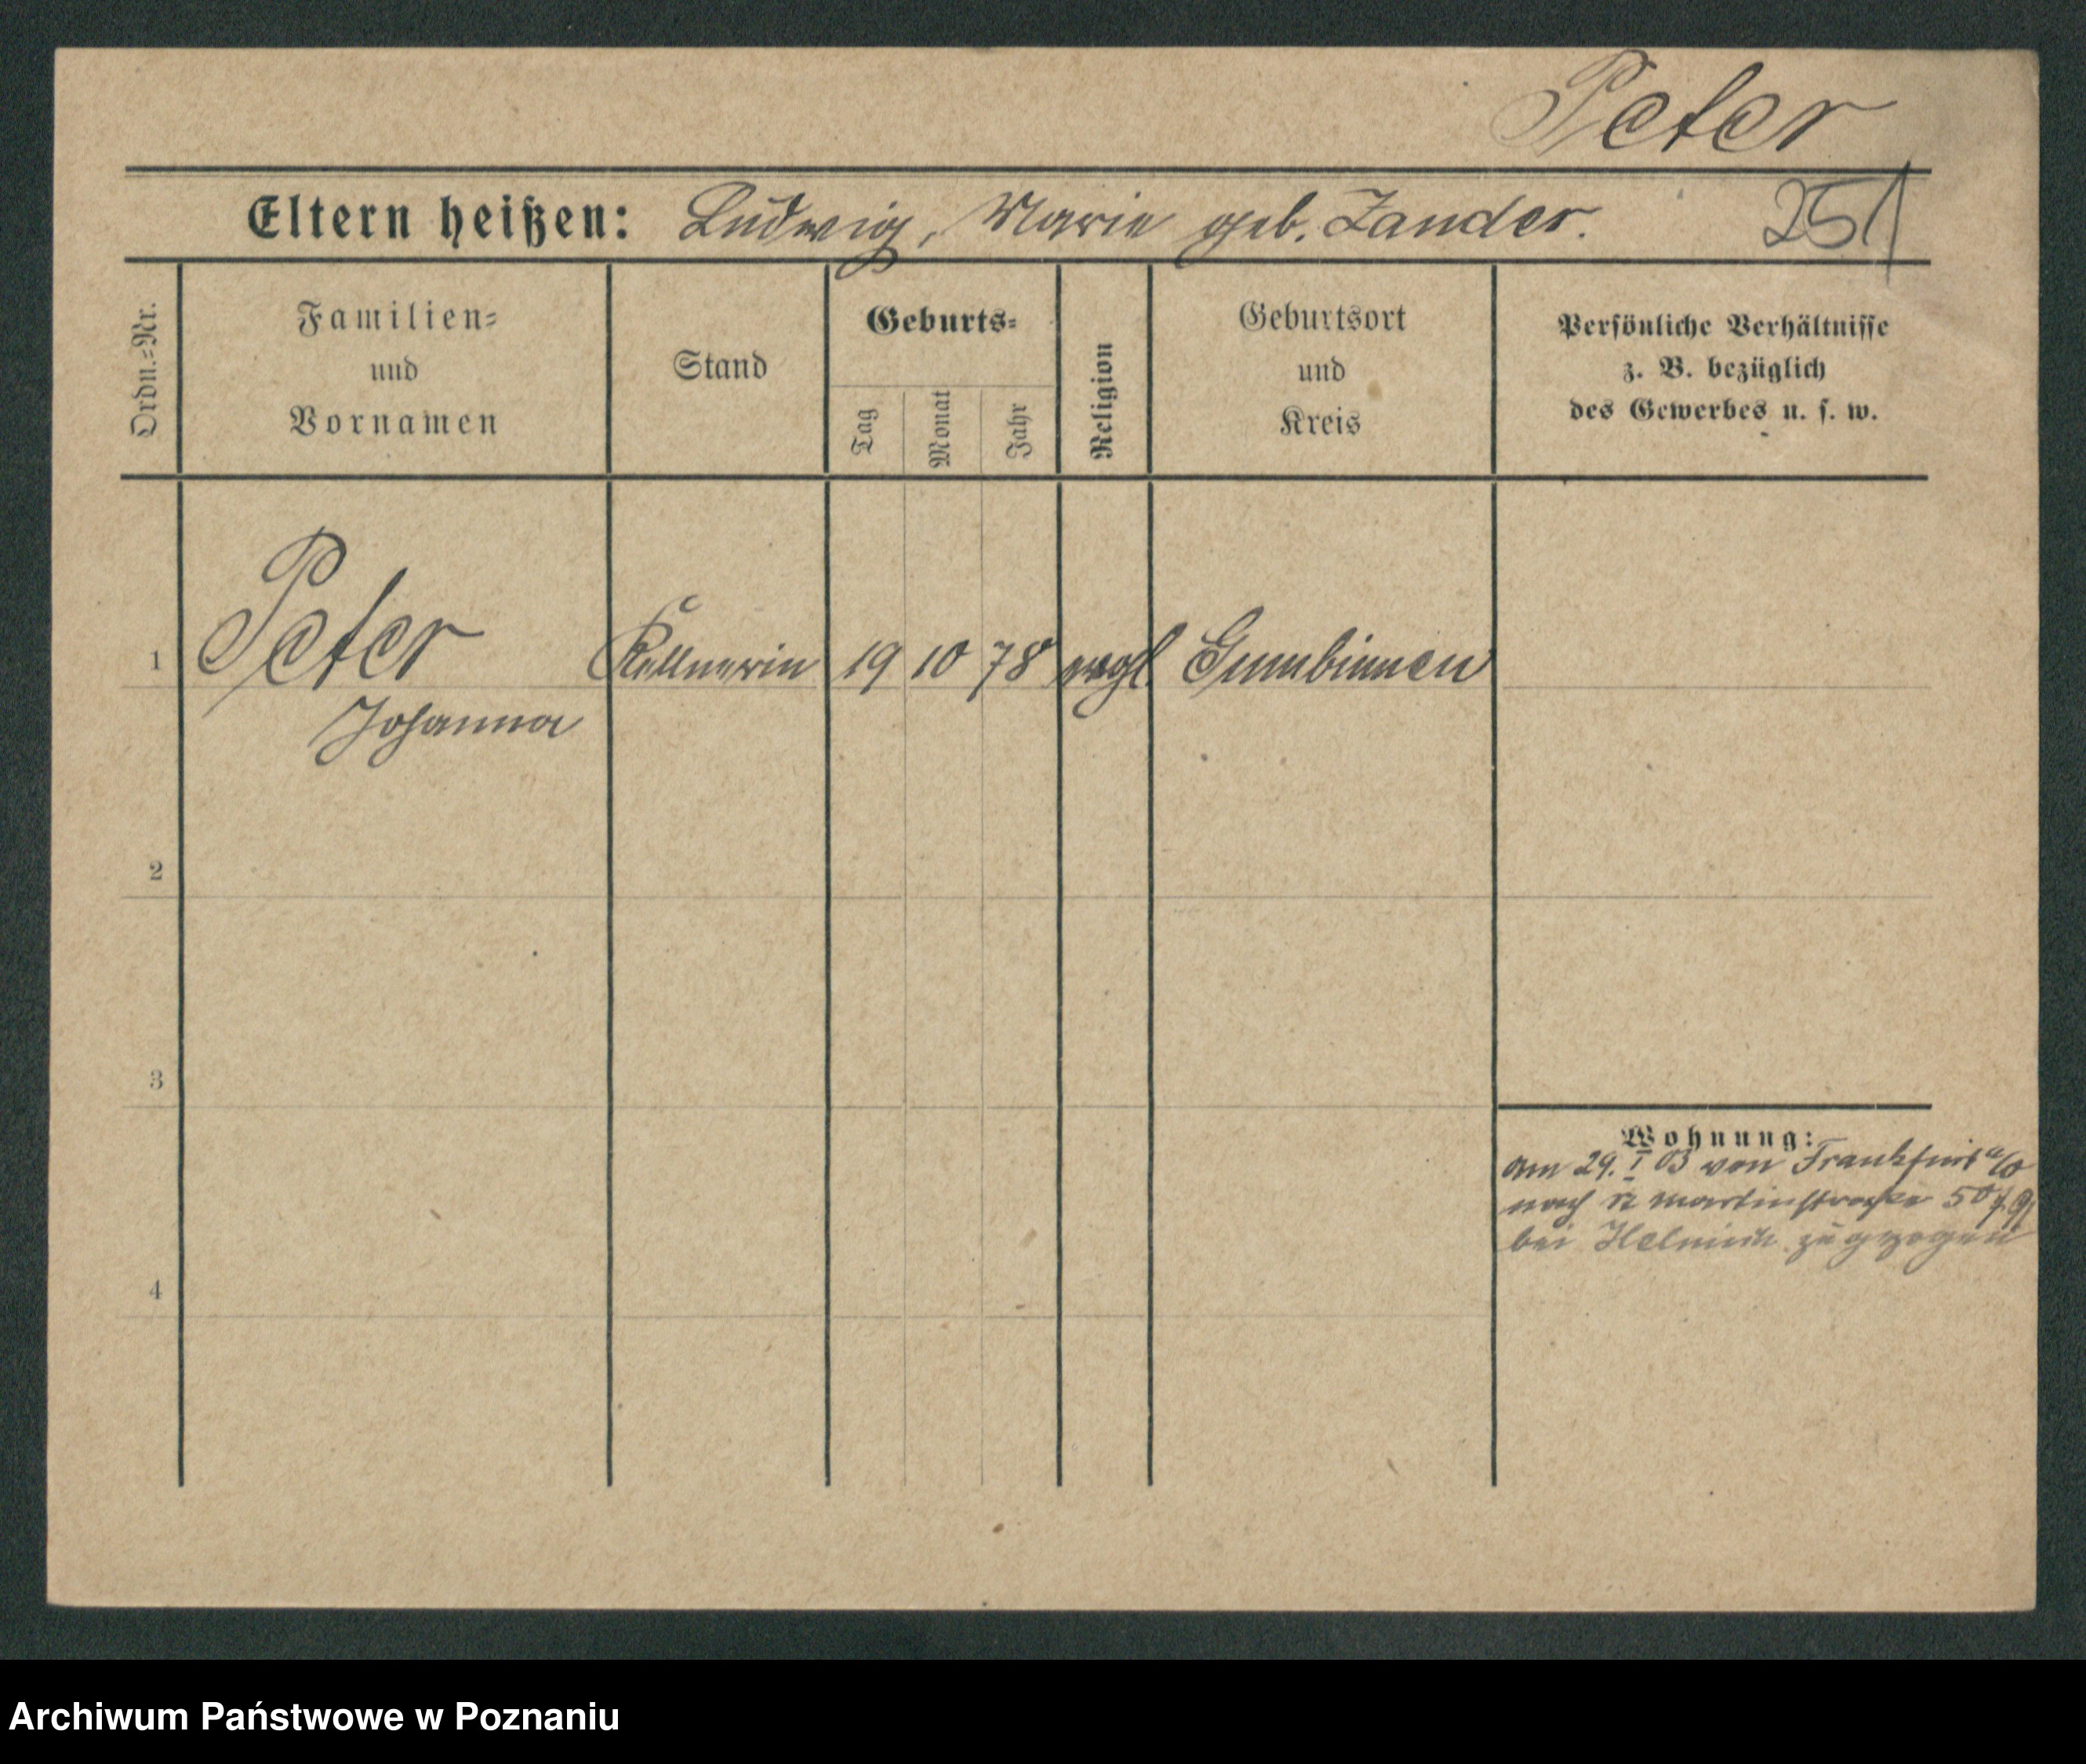 Peter
Eltern heißen: Ludwig, Marie geb. Zander.
251
Ordn.=Nr.
Familien=
und
Vornamen
Stand
Geburts=
Tag
Monat
Jahr
Religion
Geburtsort
und
Kreis
Persönliche Verhältnisse
z. B. bezüglich
des Gewerbes u. s. w.
1 Peter Kellnerin 19 10 78 evgl. Gumbinnen
Johanna
2
3
4
Wohnung:
am 29. I 03 von Frankfurt a/O
nach Martinstraße 50
bei zugezogen
Archiwum Państwowe w Poznaniu